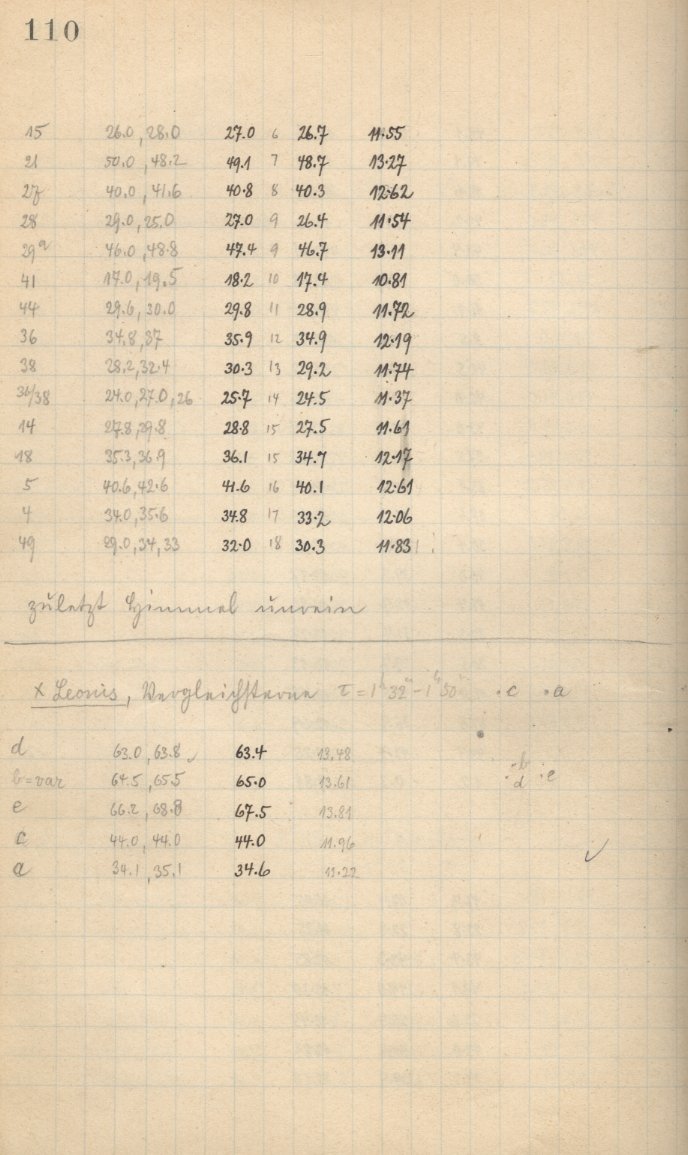 110
15 26.0, 28.0 27.0 6 26.7 11.55
21 50.0, 48.2 49.1 7 48.7 13.27
27 40.0, 41.6 40.8 8 40.3 12.62
28 29.0, 25.0 27.0 9 26.4 11.54
29a 46.0, 48.8 47.4 9 46.7 13.11
41 17.0, 19.5 18.2 10 17.4 10.81
44 29.6, 30.0 29.8 11 28.9 11.72
36 34.8, 37 35.9 12 34.9 12.19
38 28.2, 32.4 30.3 13 29.2 11.74
36/38 24.0, 27.0, 26 25.7 14 24.5 11.37
14 27.8, 29.8 28.8 15 27.5 11.61
18 35.3, 36.9 36.1 15 34.7 12.17
5 40.6, 42.6 41.6 16 40.1 12.61
4 34.0, 35.6 34.8 17 33.2 12.06
49 29.0, 34, 33 32.0 18 30.3 11.83
zuletzt Himmel unrein
X Leonis, Vergleichsterne τ = 1h 32m – 1h 50m . c . a
d 63.0, 63.8 63.4 13.48 . b
b = var 64.5, 65.5 65.0 13.61 . d . e
e 66.2, 68.8 67.5 13.81
c 44.0, 44.0 44.0 11.96
a 34.1, 35.1 34.6 11.22